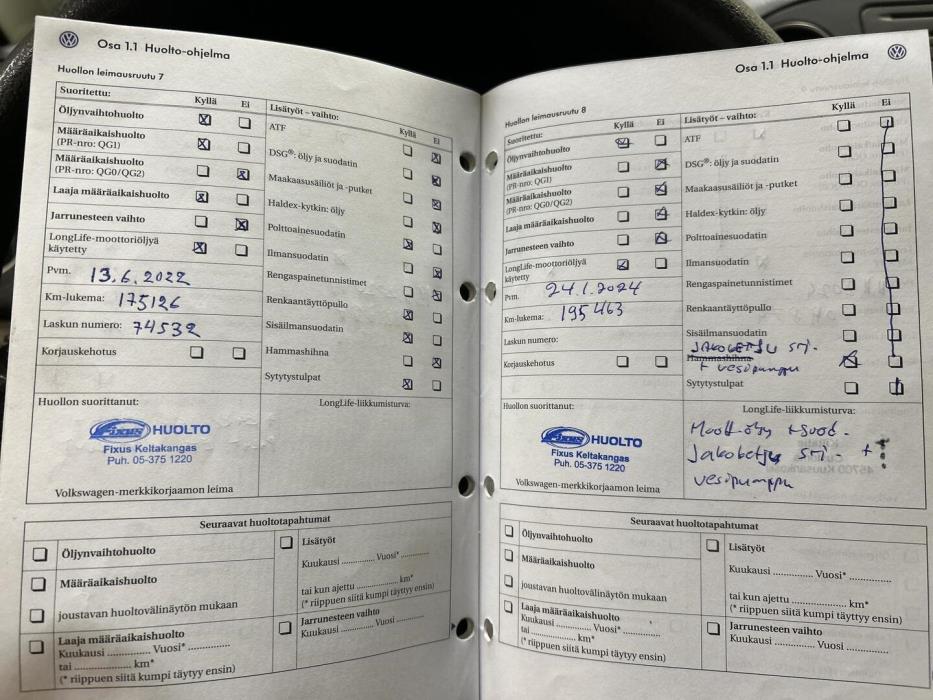 Osa 1.1 Huolto-ohjelma
Huollon leimausruutu 7
Suoritettu: Kyllä Ei
Öljynvaihtohuolto
Määräaikaishuolto
(PR-nro: QG1)
Määräaikaishuolto
(PR-nro: QG0/QG2)
Laaja määräaikaishuolto
Jarrunesteen vaihto
LongLife-moottoriöljyä
käytetty
Pvm. 13.6.2022
Km-lukema: 175126
Laskun numero: 74532
Korjauskehotus
Lisätyöt – vaihto: Kyllä Ei
ATF
DSG®: öljy ja suodatin
Maakaasusäiliöt ja -putket
Haldex-kytkin: öljy
Polttoainesuodatin
Ilmansuodatin
Rengaspainetunnistimet
Renkaantäyttöpullo
Sisäilmansuodatin
Hammashihna
Sytytystulpat
Huollon suorittanut:
Fixus HUOLTO
Fixus Keltakangas
Puh. 05-375 1220
Volkswagen-merkkikorjaamon leima
LongLife-liikkumisturva:
Seuraavat huoltotapahtumat
Öljynvaihtohuolto
Määräaikaishuolto
joustavan huoltovälinäytön mukaan
Laaja määräaikaishuolto
Kuukausi ............. Vuosi* ............
tai ................. km*
(* riippuen siitä kumpi täyttyy ensin)
Lisätyöt
Kuukausi .......... Vuosi* ............
tai kun ajettu .................... km*
(* riippuen siitä kumpi täyttyy ensin)
Jarrunesteen vaihto
Kuukausi .......... Vuosi ............
Osa 1.1 Huolto-ohjelma
Huollon leimausruutu 8
Suoritettu: Kyllä Ei
Öljynvaihtohuolto
Määräaikaishuolto
(PR-nro: QG1)
Määräaikaishuolto
(PR-nro: QG0/QG2)
Laaja määräaikaishuolto
Jarrunesteen vaihto
LongLife-moottoriöljyä
käytetty
Pvm. 24.1.2024
Km-lukema: 195463
Laskun numero:
Korjauskehotus
Lisätyöt – vaihto: Kyllä Ei
ATF
DSG®: öljy ja suodatin
Maakaasusäiliöt ja -putket
Haldex-kytkin: öljy
Polttoainesuodatin
Ilmansuodatin
Rengaspainetunnistimet
Renkaantäyttöpullo
Sisäilmansuodatin
JAKOKETJU srj.
Hammashihna
+ vesipumppu
Sytytystulpat
Huollon suorittanut:
Fixus HUOLTO
Fixus Keltakangas
Puh. 05-375 1220
Volkswagen-merkkikorjaamon leima
LongLife-liikkumisturva:
Moott.öljy + suod.
Jakoketju srj. +
vesipumppu
Seuraavat huoltotapahtumat
Öljynvaihtohuolto
Määräaikaishuolto
joustavan huoltovälinäytön mukaan
Laaja määräaikaishuolto
Kuukausi ............. Vuosi* ............
tai ................. km*
(* riippuen siitä kumpi täyttyy ensin)
Lisätyöt
Kuukausi ............. Vuosi* ............
tai kun ajettu .................... km*
(* riippuen siitä kumpi täyttyy ensin)
Jarrunesteen vaihto
Kuukausi ............. Vuosi ............